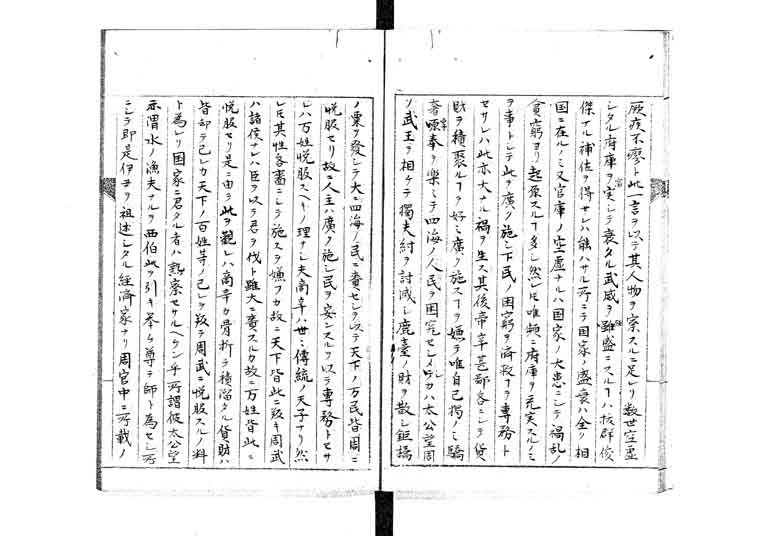 厥疾不瘳ト此一言ヲ以テ其人物ヲ察スルニ足レリ数世空虚
シタル府庫ヲ実シテ衰タル武威ヲ強盛ニスルヿハ抜群俊
傑ナル補佐ヲ得サレハ能ハサル所ニテ国家ノ盛衰ハ全ク相
国ニ在ルノミ又官庫ノ空虚ナルハ国家ノ大患ニシテ禍乱ノ
貧窮ヨリ起原スルヿ多シ然レ𪜈唯頻ニ府庫ヲ充実スルノミ
ヲ事トシテ此ヲ廣ク施シ下民ノ困窮ヲ済救フヲ専務ト
セサレハ此亦大ナル禍ヲ生ス其後帝辛甚鄙吝ニシテ貨
財ヲ積聚ルヿヲ好ミ廣ク施スヿヲ嫌テ唯自己独ノミ驕
奢ヲ楽ミテ四海ノ人民ヲ困究セシメシカハ太公望周
ノ武王ヲ相ケテ獨夫紂ヲ討滅シ鹿臺ノ財ヲ散シ鉅橋
ノ粟ヲ發シテ大ニ四海ノ民ニ賚セシヲ以テ天下ノ万民皆周ニ
悦服セリ故ニ人主ハ廣ク施シ民ヲ安ンスルヲ以テ専務トセサ
レハ万姓悦服スヘキノ理ナシ夫商辛ハ世々傳統ノ天子ナリ然
レ𪜈其性吝嗇ニシテ施スヲ嫌フカ故ニ天下皆此ニ叛キ周武
ハ諸侯ナレハ臣ヲ以テ君ヲ伐ト雖大ニ賚スルカ故ニ万姓皆此ニ
悦服セリ是ニ由テ此ヲ觀レハ商辛カ骨折テ積溜タル貨財ハ
皆却テ己レカ天下ノ百姓等ノ己レヲ叛テ周武ニ悦服スルノ料
ト為レリ国家ニ君タル者ハ熟察セサルヘケンヤ所謂彼太公望
示渭水ノ漁夫ナルヲ西伯此ヲ引キ挙ケ尊テ師ト為セシ所
ニシテ即是伊尹ヲ祖述シタル経済家ナリ周官中ニ所載ノ